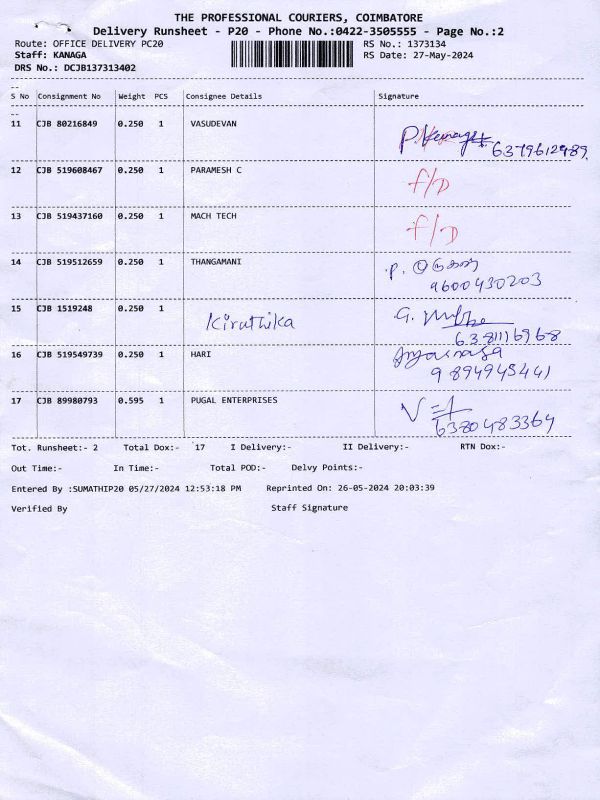 THE PROFESSIONAL COURIERS, COIMBATORE
Delivery Runsheet - P20 - Phone No.:0422-3505555 - Page No.:2
Route: OFFICE DELIVERY PC20 RS No.: 1373134
Staff: KANAGA RS Date: 27-May-2024
DRS No.: DCJB137313402
S No Consignment No Weight PCS Consignee Details Signature
11 CJB 80216849 0.250 1 VASUDEVAN
6379612989.
12 CJB 519608467 0.250 1 PARAMESH C f/D
13 CJB 519437160 0.250 1 MACH TECH f/D
14 CJB 519512659 0.250 1 THANGAMANI P.
9600430203
15 CJB 1519248 0.250 1 Kiruthika G.
6381116968
16 CJB 519549739 0.250 1 HARI
9894945441
17 CJB 89980793 0.595 1 PUGAL ENTERPRISES
6380483364
Tot. Runsheet:- 2 Total Dox:- 17 I Delivery:- II Delivery:- RTN Dox:-
Out Time:- In Time:- Total POD:- Delvy Points:-
Entered By :SUMATHIP20 05/27/2024 12:53:18 PM Reprinted On: 26-05-2024 20:03:39
Verified By Staff Signature